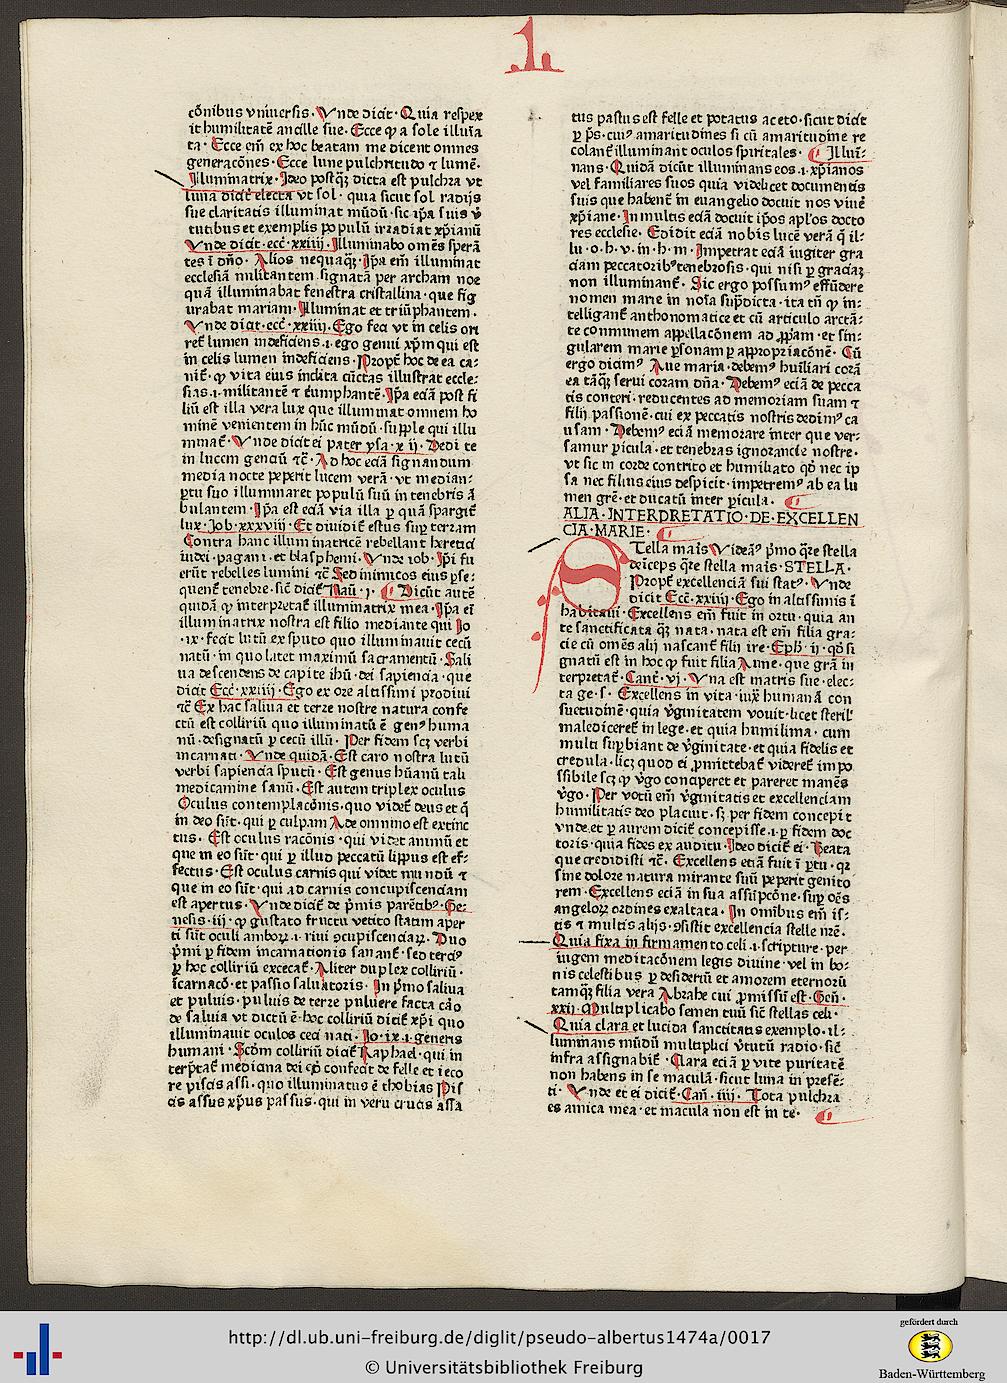 1.
cōnibus vniuersis. Vnde dicit. Quia respex
it humilitatē ancille sue. Ecce ꝙ a sole illuīa
ta. Ecce em̄ ex hoc beatam me dicent omnes
generacōnes. Ecce lune pulchritudo ⁊ lumē.
Illuminatrix. Ideo postqꝫ dicta est pulchra vt
luna dicit̄ electa vt sol. quia sicut sol radijs
sue claritatis illuminat mūdū sic ip̄a suis v̄
tutibus et exemplis populū irradiat xp̄ianū
Vnde dicit. ecc̄. xxiiij. Illuminabo omēs sperā
tes ī dn̄o. Alios nequaqꝫ. Ip̄a em̄ illuminat
ecclesiā militantem signatā per archam noe
quā illuminabat fenestra cristallina. que fig
urabat mariam. Illuminat et triūphantem.
Vnde dicit. ecc̄. xxiiij. Ego feci vt in celis ori
ret̄ lumen indeficiens .i. ego genui xp̄m qui est
in celis lumen indeficiens. Propt̄ hoc de ea ca⸗
nit̄. ꝙ vita eius inclita cūctas illustrat eccle⸗
sias .i. militantē ⁊ t̄umphantē. Ip̄a eciā post fi
liū est illa vera lux que illuminat omnem ho
minē venientem in hūc mūdū. supple qui illu
minat̄. Vnde dicit ei pater ysa. x ij. Dedi te
in lucem genciū ⁊c̄. Ad hoc eciā signandum
media nocte peperit lucem verā. vt median⸗
ꝑtu suo illuminaret populū suū in tenebris ā
bulantem. Ip̄a est eciā via illa ꝑ quā spargit̄
lux. Job. xxxviij. Et diuidit̄ estus sup̄ terram
Contra hanc illuminatricē rebellant heretici
iudei. pagani. et blasphemi. Vnde iob. Ip̄i fu
erūt rebelles lumini ⁊c̄ Sed inimicos eius pse⸗
quent̄ tenebre. sic̄ dicit̄ Naū. j. Dicūt autē
quidā ꝙ interpretat̄ illuminatrix mea. Ip̄a ei
illuminatrix nostra est filio mediante qui Jo
.ix. fecit lutū ex sputo quo illuminauit cecū
natū. in quo latet maximū sacramentū. Sali
ua descendens de capite ihū. dei sapiencia. que
dicit Ecc̄. xxiiij. Ego ex ore altissimi prodiui
⁊c̄ Ex hac saliua et terre nostre natura confe
ctū est colliriū quo illuminatū ē genꝰ huma
nū. designatū ꝑ cecū illū. Per fidem scꝫ verbi
incarnati. Vnde quidā. Est caro nostra lutū
verbi sapiencia sputū. Est genus hūanū tali
medicamine sanū. Est autem triplex oculus
Oculus contemplacōnis. quo videt̄ deus et q̄
in deo sūt. qui ꝑ culpam Ade omnino est extinc
tus. Est oculus racōnis. qui videt animū et
que in eo sūt. qui ꝑ illud peccatū lippus est ef⸗
fectus. Est oculus carnis qui videt mundū ⁊
que in eo sūt. qui ad carnis concupiscenciam
est apertus. Vnde dicit̄ de p̄mis parētibꝰ. Ge⸗
nesis. iij. ꝙ gustato fructu vetito statim aper
ti sūt oculi amboꝝ .i. riui ꝯcupiscenciaꝝ. Duo
p̄mi ꝑ fidem incarnationis sanant̄. sed terciꝰ
ꝑ hoc colliriū excecat̄. Aliter duplex colliriū.
īcarnacō. et passio saluatoris. In p̄mo saliua
et puluis. puluis de terre puluere facta cāo
de saluia vt dictū ē. hoc colliriū dicit̄ xp̄i quo
illuminauit oculos ceci nati. Jo. ix .i. generis
humani. Scd̄m colliriū dicit̄ Raphael. qui in
terp̄tat̄ medicina dei ꝙ confecit de felle et ieco
re piscis assi. quo illuminatus ē thobias Pis
cis assus xp̄us passus. qui in veru crucis assa
tus pastus est felle et potatus aceto. sicut dicit̄
ꝑ p̄s. cuiꝰ amaritudines si cū amaritudine re
colant̄ illuminant oculos spiritales. Illuī⸗
nans. Quidā dicūt illuminans eos .i. xp̄ianos
vel familiares suos quia videlicet documentis
suis que habent̄ in euangelio docuit nos viue̅
xp̄iane. In multis eciā docuit ip̄os apl̄os docto
res ecclesie. Edidit eciā nobis lucē verā q̄ il⸗
lu. o. h. v. in. h. m. Impetrat eciā iugiter gra
ciam peccatoribꝰ tenebrosis. qui nisi ꝑ graciaꝫ
non illuminant̄. Sic ergo possumꝰ effūdere
nomen marie in noīa sup̄dicta. ita tn̄ ꝙ in⸗
telligant̄ anthonomatice et cū articulo arctā⸗
te communem appellacōnem ad ꝓpam. et sin⸗
gularem marie ꝑsonam ꝑ appropriacōnē. Cū
ergo dicimꝰ Aue maria. debemꝰ huīliari corā
ea tāqꝫ serui coram dn̄a. Debemꝰ eciā de pecca
tis conteri. reducentes ad memoriam suam ⁊
filij passionē. cui ex peccatis nostris dedimꝰ ca
usam. Debemꝰ eciā memorare inter que ver⸗
samur ꝑicula. et tenebras ignorancie nostre.
vt sic in corde contrito et humiliato qd̄ nec ip
sa nec filius eius despicit. impetremꝰ ab ea lu
men grē. et ducatū inter ꝑicula.
ALIA. INTERPRETATIO. DE. EXCELLEN
CIA. MARIE.
STella maīs Videāꝰ p̄mo q̄re stella
deīceps q̄re stella maīs. STELLA.
Propt̄ excellenciā sui statꝰ. Vnde
dicit̄ Ecc̄. xxiiij. Ego in altissimis ī
habitaui. Excellens em̄ fuit in ortu. quia an
te sanctificata qꝫ nata. nata est em̄ filia gra⸗
cie cū omēs alij nascant̄ filij ire. Eph̄. ij. qd̄ si
gnatū est in hoc ꝙ fuit filia Anne. que grā in
terpretat̄. Cant̄. vj. Vna est matris sue. elec⸗
ta ge. s. Excellens in vita. iux̄ humanā con
suetudinē. quia v̄ginitatem vouit. licet sterilꝰ
malediceret̄ in lege. et quia humilima. cum
multi sup̄biant de v̄ginitate. et quia fidelis et
credula. licꝫ quod ei ꝓmittebat̄ videret̄ impo
ssibile scꝫ ꝙ v̄go conciperet et pareret manēs
v̄go. Per votū em̄ v̄ginitatis et excellenciam
humilitatis deo placuit. sꝫ per fidem concepit
vnde et ꝑ aurem dicit̄ concepisse .i. ꝑ fidem doc
toris. quia fides ex auditu. Ideo dicit̄ ei. Beata
que credidisti ⁊c̄. Excellens etiā fuit ī ꝑtu. qr
sine dolore natura mirante suū peperit genito
rem. Excellens eciā in sua assūpcōne. sup̄ oēs
angeloꝝ ordines exaltata. In omībus em̄ is⸗
tis ⁊ multis alijs. ꝯsistit excellencia stelle nrē.
Quia fixa in firmamento celi .i. scripture. per
iugem meditacōnem legis diuine. vel in bo⸗
nis celestibus ꝑ desideriū et amorem eternorū
tamqꝫ filia vera Abrahe cui ꝓmissū est. Gen̄.
xxij. Multiplicabo semen tuū sic̄ stellas celi.
Quia clara et lucida sanctitatis exemplo. il⸗
luminans mūdū multiplici v̄tutū radio. sic̄
infra assignabit̄. Clara eciā ꝑ vite puritatē
non habens in se maculā. sicut luna in presē⸗
ti. Vnde et ei dicit̄. Can̄. iiij. Tota pulchra
es amica mea. et macula non est in te.
http://dl.ub.uni-freiburg.de/diglit/pseudo-albertus1474a/0017
© Universitätsbibliothek Freiburg
gefördert durch
Baden-Württemberg